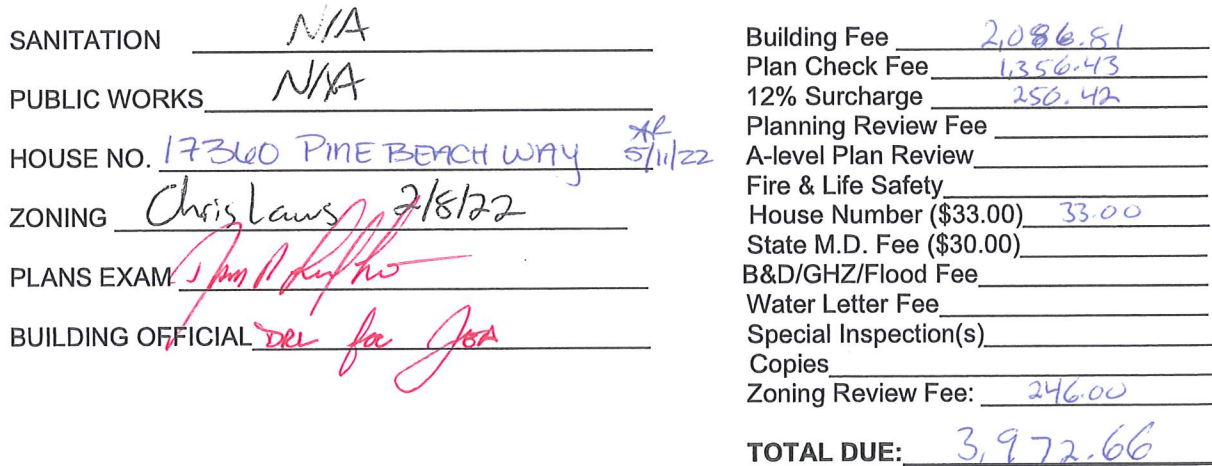 SANITATION N/A
PUBLIC WORKS N/A
HOUSE NO. 17360 PINE BEACH WAY AR 5/11/22
ZONING Chris Laws 2/8/22
PLANS EXAM
BUILDING OFFICIAL DRL for JOA
Building Fee 2,086.81
Plan Check Fee 1,356.43
12% Surcharge 250.42
Planning Review Fee
A-level Plan Review
Fire & Life Safety
House Number ($33.00) 33.00
State M.D. Fee ($30.00)
B&D/GHZ/Flood Fee
Water Letter Fee
Special Inspection(s)
Copies
Zoning Review Fee: 246.00
TOTAL DUE: 3,972.66